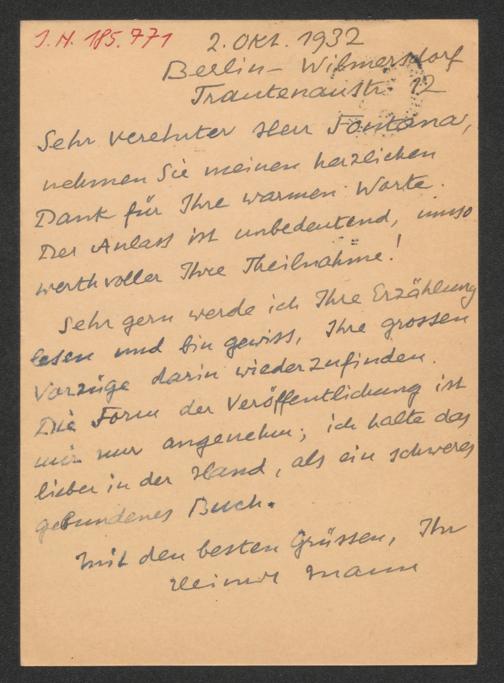 J.N. 185.771
2. Okt. 1932
Berlin – Wilmersdorf
Trautenaustr. 12
Sehr verehrter Herr Fontana,
nehmen Sie meinen herzlichen
Dank für Ihre warmen Worte.
Der Anlass ist unbedeutend, umso
werthvoller Ihre Theilnahme!
Sehr gern werde ich Ihre Erzählung
lesen und bin gewiss, Ihre grossen
Vorzüge darin wiederzufinden.
Die Form der Veröffentlichung ist
mir nur angenehm; ich halte das
lieber in der Hand, als ein schweres
gebundenes Buch.
Mit den besten Grüssen, Ihr
Heinrich Mann